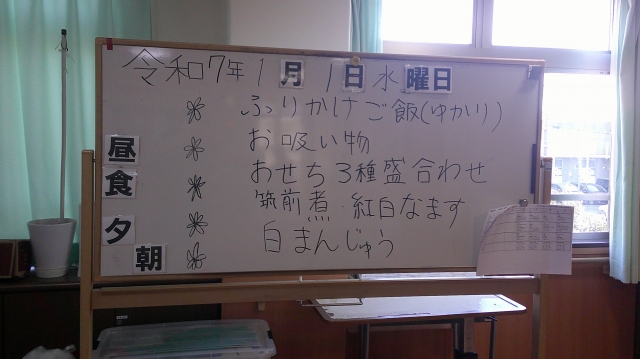 令和7年1月1日水曜日
ふりかけご飯(ゆかり)
お吸い物
おせち3種盛合わせ
筑前煮・紅白なます
白まんじゅう
昼
食
夕
朝